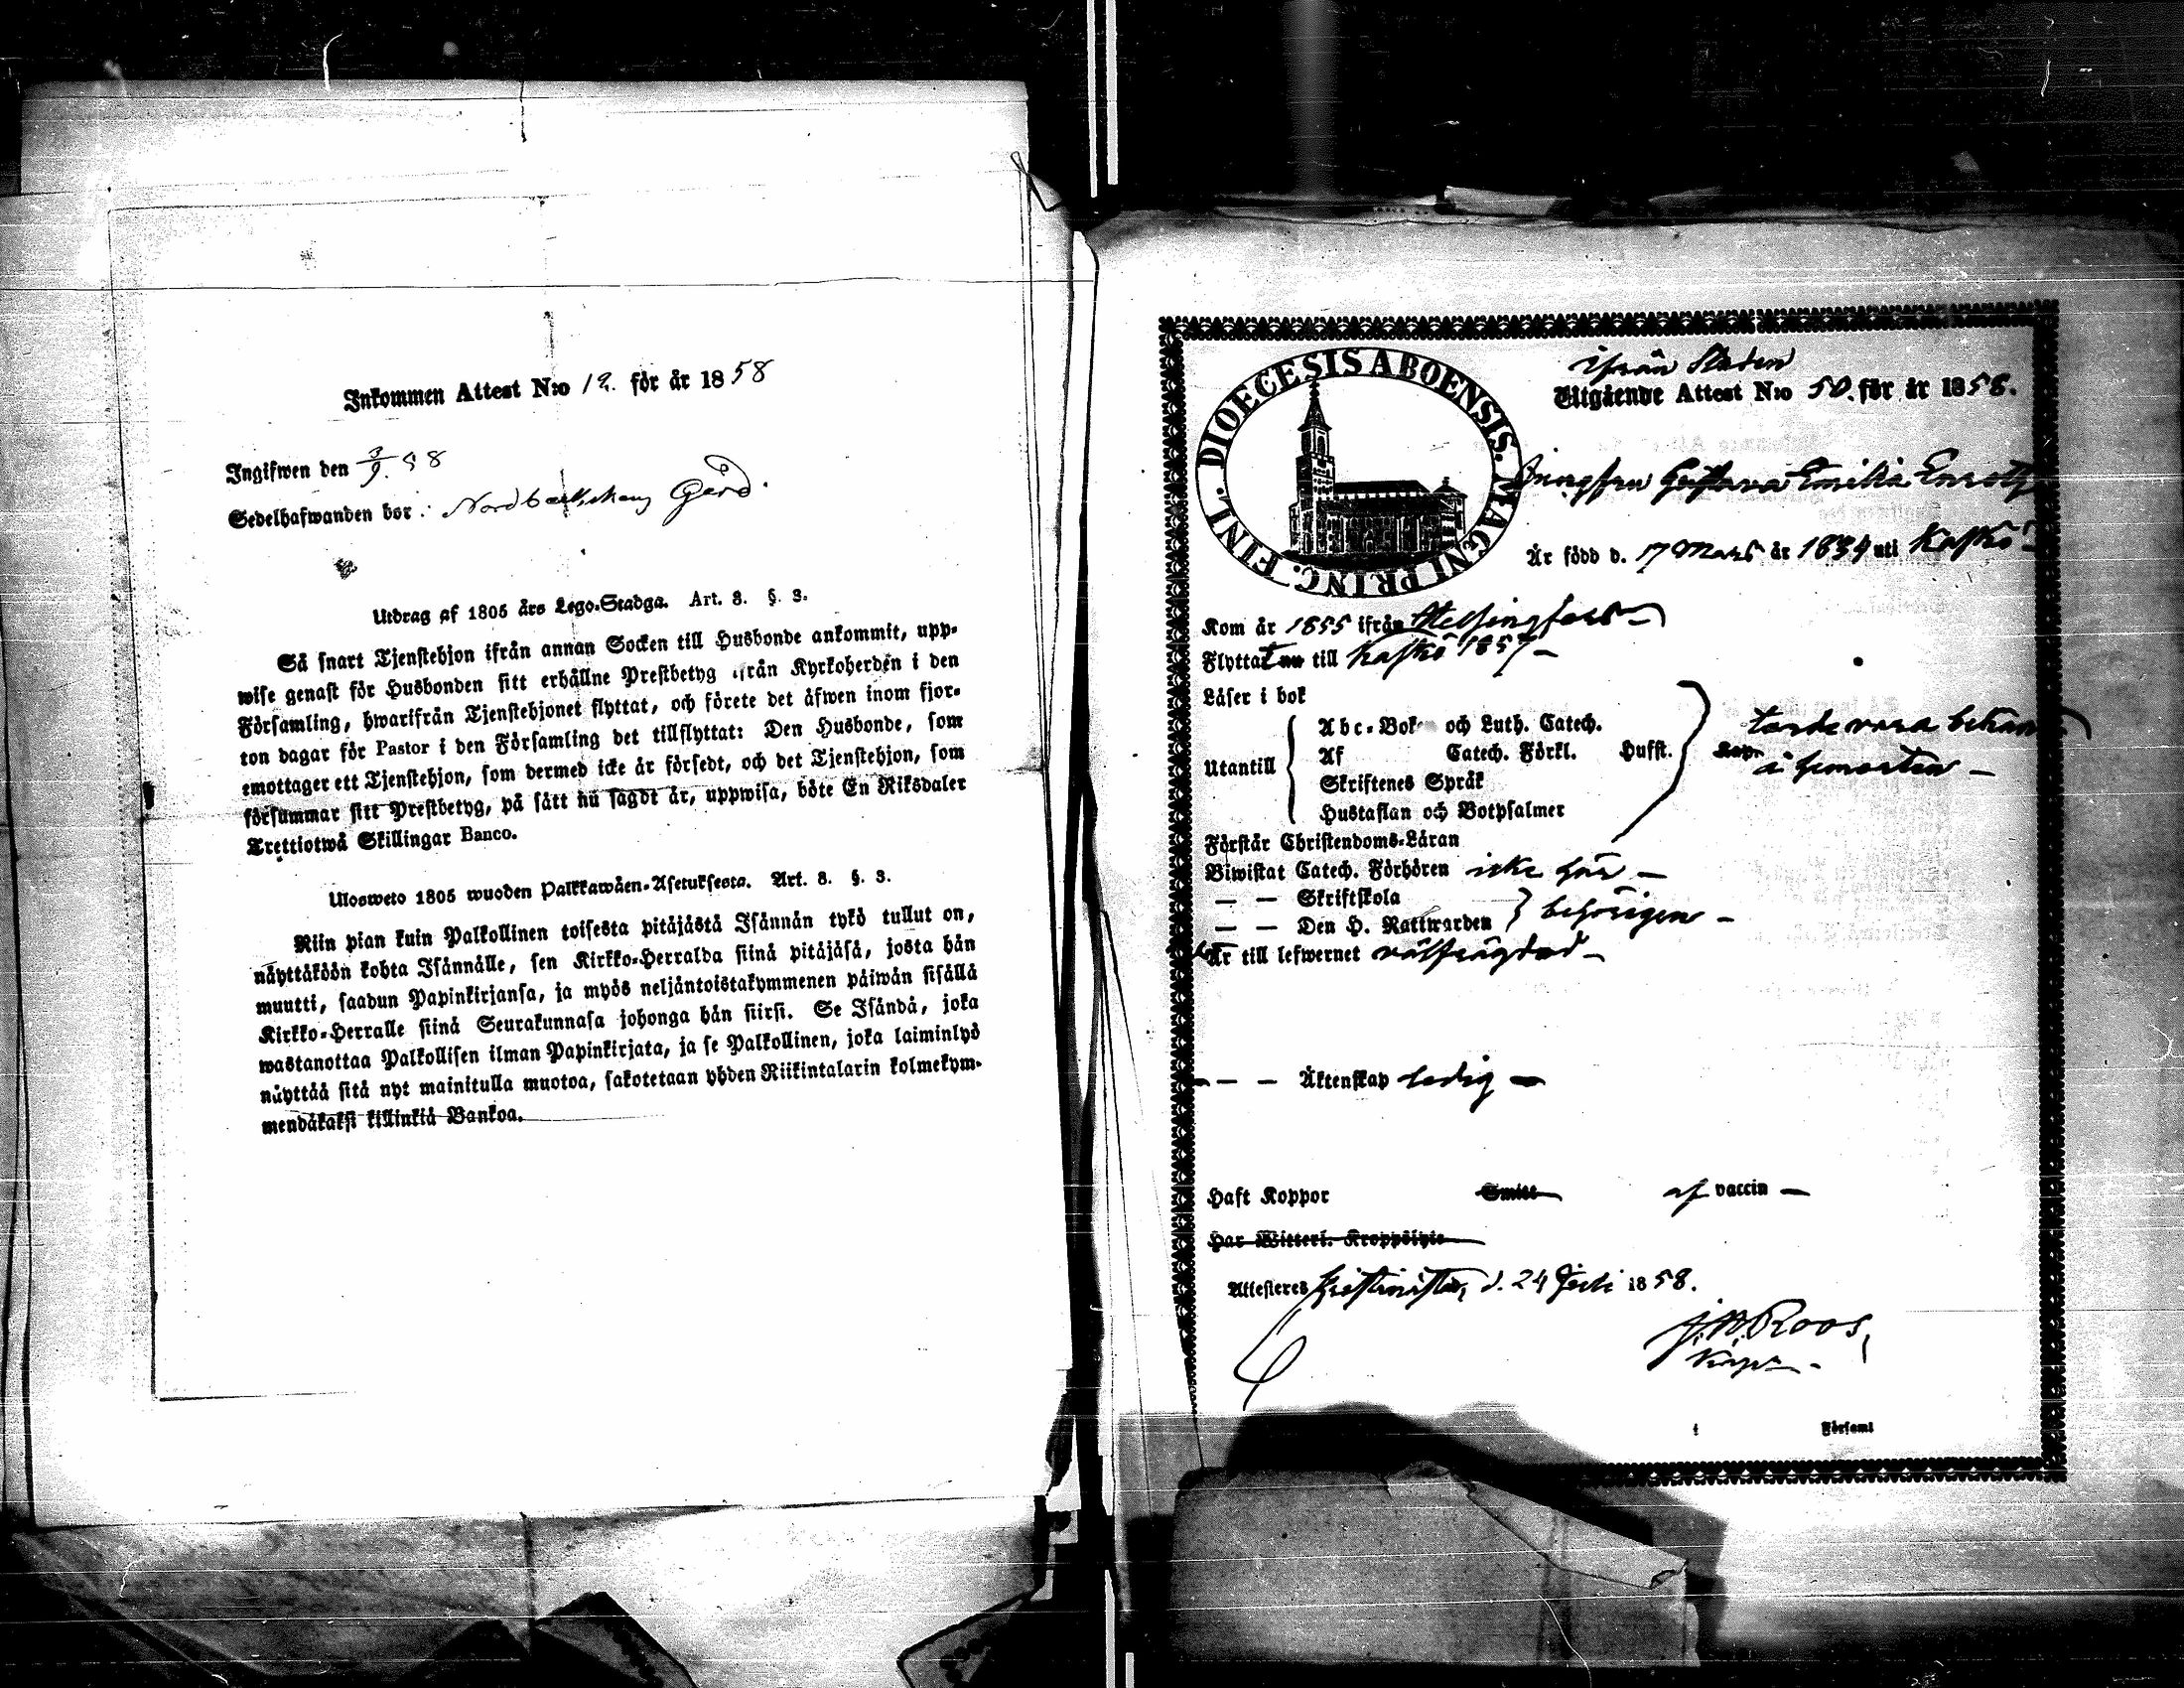 Inkommen Attest N:o 12. för år 1858
Ingifwen den 3/9. 58
Sedelhafwanden bor: Gård.
Utdrag af 1805 års Lego-Stadga. Art. 8. §. 3.
Så snart Tjenstehjon ifrån annan Socken till Husbonde ankommit, upp-
wise genast för Husbonden sitt erhållne Prestbetyg ifrån Kyrkoherden i den
Församling, hwarifrån Tjenstehjonet flyttat, och förete det äfwen inom fjor-
ton dagar för Pastor i den Församling det tillflyttat: Den Husbonde, som
emottager ett Tjenstehjon, som dermed icke är försedt, och det Tjenstehjon, som
försummar sitt Prestbetyg, på sätt nu sagdt är, uppwisa, böte En Riksdaler
Trettiotwå Skillingar Banco.
Ulosweto 1805 wuoden Palkkawäen-Asetuksesta. Art. 8. §. 3.
Niin pian kuin Palkollinen toisesta pitäjästä Isännän tykö tullut on,
näyttäköön kohta Isännälle, sen Kirkko-Herralda siinä pitäjäsä, josta hän
muutti, saadun Papinkirjansa, ja myös neljäntoistakymmenen päiwän sisällä
Kirkko-Herralle siinä Seurakunnasa johonga hän siirsi. Se Isändä, joka
wastanottaa Palkollisen ilman Papinkirjata, ja se Palkollinen, joka laiminlyö
näyttää sitä nyt mainitulla muotoa, sakotetaan yhden Riikintalarin kolmekym-
mendäkaksi killinkiä Bankoa.
DIOECESIS ABOENSIS. MAGNI PRINC. FINL.
ifrån Staden
Utgående Attest N:o 50. för år 1858.
Jungfru Gustava Emilia Enroth
Är född d. 17 Mars år 1834 uti Kaskö
Kom år 1855 ifrån Helsingfors
Flyttat till Kaskö 1857
Läser i bok
Utantill
Abc-Bok och Luth. Catech.
Af Catech. Förkl. Hufst.
Skriftenes Språk
Hustaflan och Botpsalmer
torde vara bekant
å hemorten
Förstår Christendoms-Läran
Biwistat Catech. Förhören icke här
— — Skriftskola
— — Den H. Nattwarden behörigen
Är till lefwernet välfrägdad
— — Äktenskap ledig
Haft Koppor Smitt af vaccin
Har Witterl. Kroppslyte
Attesteres Kristinestad, d. 24 Juli 1858.
J. W. Roos,
Kapn
i Församl